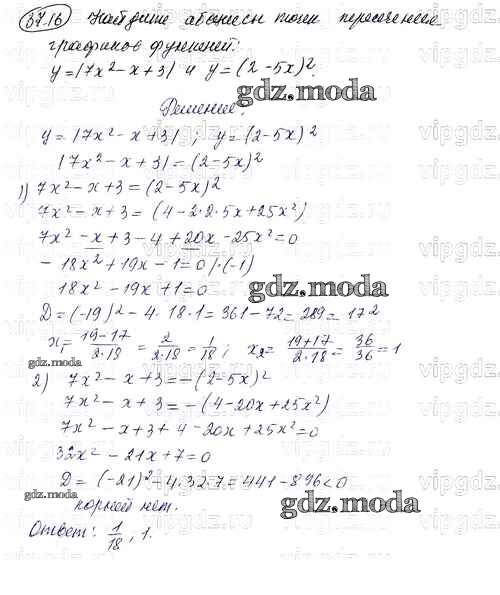 37.16 Найдите абсциссы точек пересечения
графиков функций:
y=|7x²-x+3| и y=(2-5x)².
gdz.moda
Решение.
y=|7x²-x+3|; y=(2-5x)²
|7x²-x+3|=(2-5x)²
1) 7x²-x+3=(2-5x)²
7x²-x+3=(4-2·2·5x+25x²)
7x²-x+3-4+20x-25x²=0
-18x²+19x-1=0|·(-1)
18x²-19x+1=0
gdz.moda
D=(-19)²-4·18·1=361-72=289=17²
x₁=(19-17)/(2·18)=2/(2·18)=1/18; x₂=(19+17)/(2·18)=36/36=1
gdz.moda
2) 7x²-x+3=-(2-5x)²
7x²-x+3=-(4-20x+25x²)
7x²-x+3+4-20x+25x²=0
32x²-21x+7=0
D=(-21)²-4·32·7=441-896<0
gdz.moda
корней нет.
gdz.moda
Ответ: 1/18, 1.